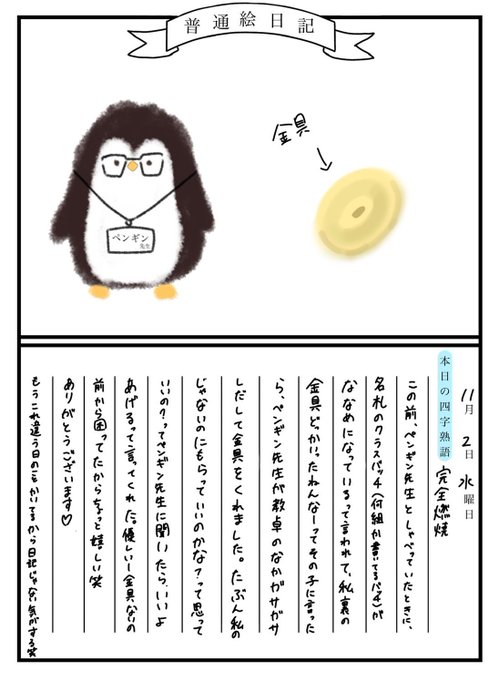 普通絵日記
金具
ペンギン
先生
11月2日水曜日
本日の四字熟語 完全燃焼
この前、ペンギン先生としゃべっていたときに、
名札のクラスバッヂ(何組か書いてるバッヂ)が
ななめになっているって言われて、私裏の
金具どっかいったねんなーってその子に言った
ら、ペンギン先生が教卓のなかガサガサ
しだして金具をくれました。たぶん私の
じゃないのにもらっていいのかな?って思って
いいの?ってペンギン先生に聞いたら、いいよ
あげるって言ってくれた。優しいー金具ないの
前から困ってたからちょっと嬉しい笑
ありがとうございます♡
もうこれ違う日のことかいてるから日記じゃない気がする笑